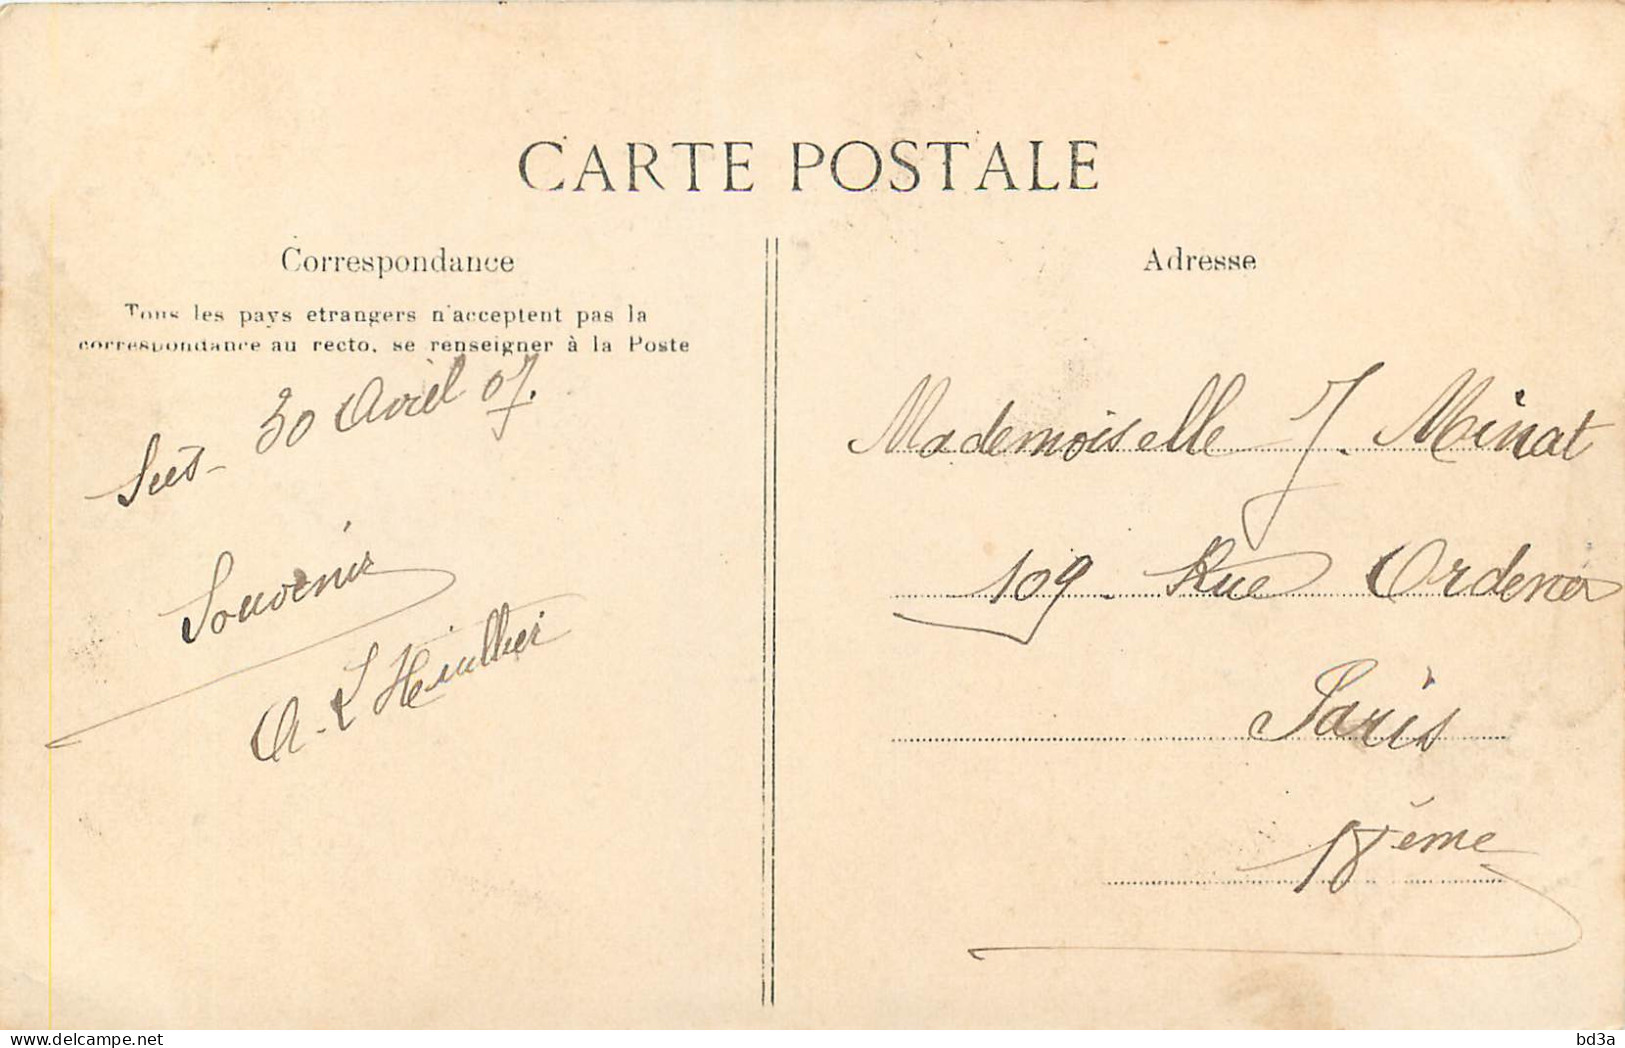 CARTE POSTALE
Correspondance
Tous les pays etrangers n'acceptent pas la
correspondance au recto, se renseigner à la Poste
30 Avril 07.
Souvenir
Adresse
Mademoiselle J. Minat
109. Rue Ordener
Paris
18ème
bd3a